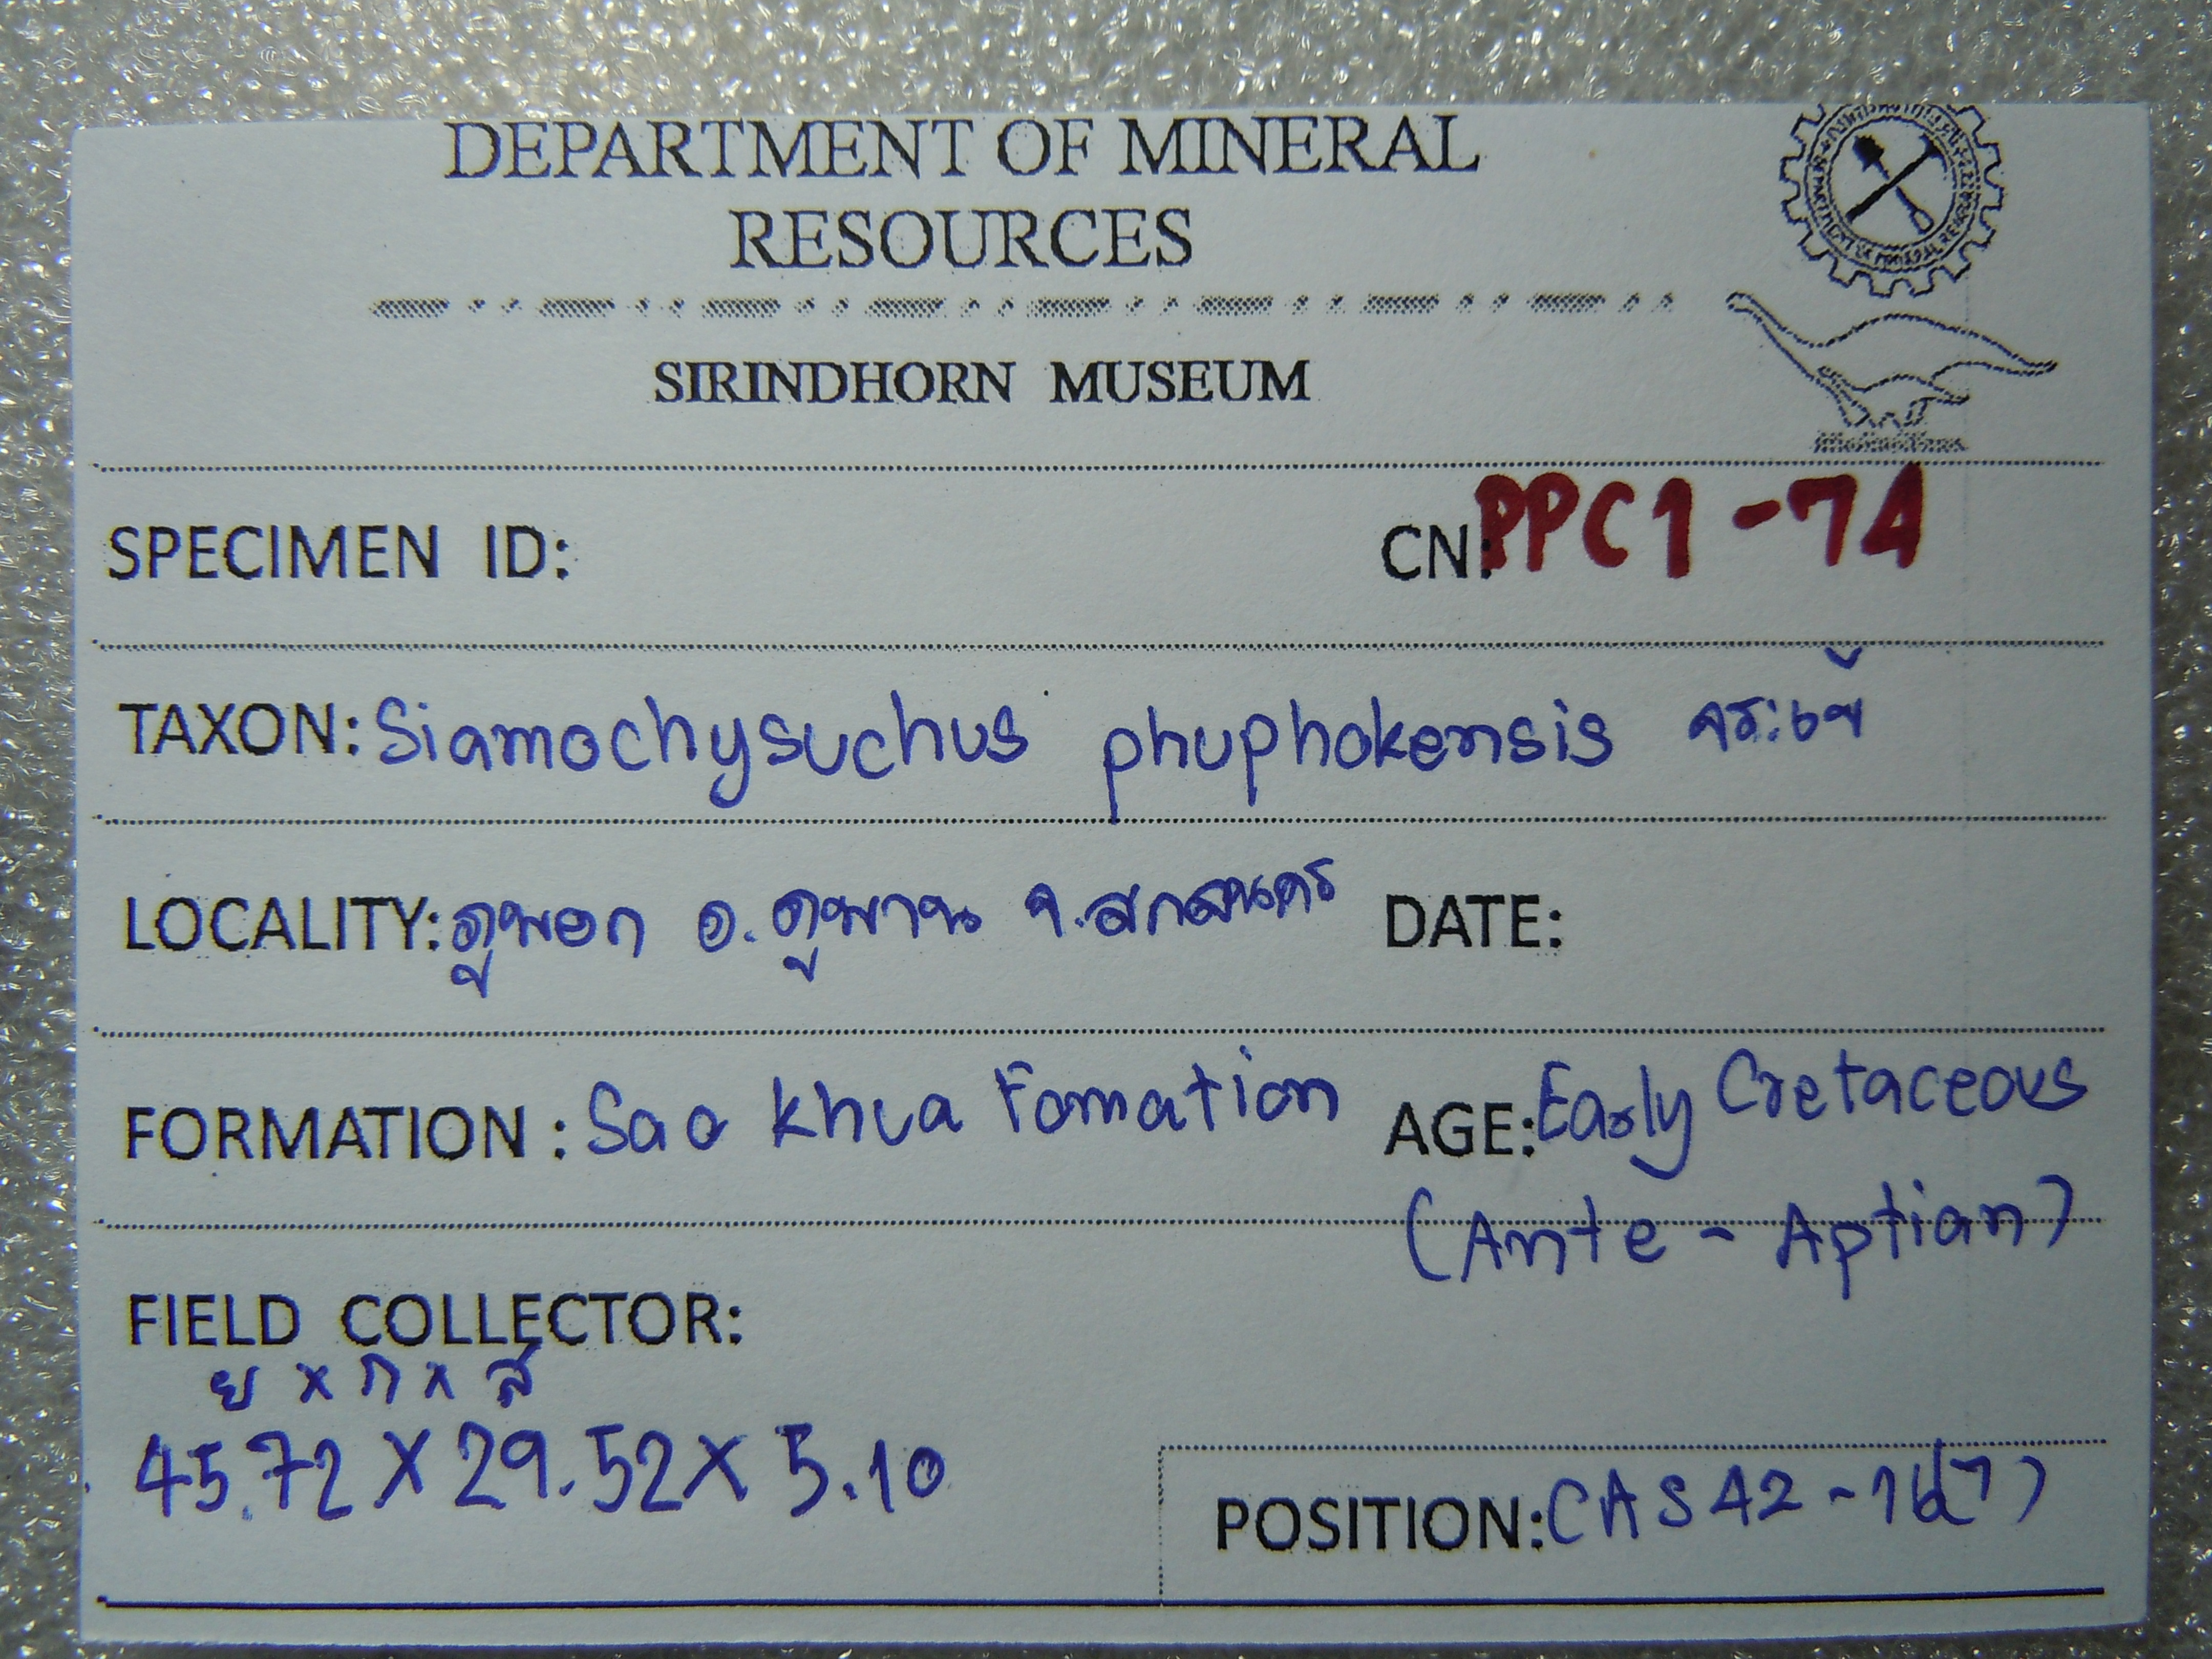 DEPARTMENT OF MINERAL
RESOURCES
SIRINDHORN MUSEUM
SPECIMEN ID: CN: PPC1-74
TAXON: Siamochysuchus phuphokensis จระเข้
LOCALITY: ภูพอก อ.ภูพาน จ.สกลนคร DATE:
FORMATION : Sao Khua Fomation AGE: Early Cretaceous
(Ante - Aptian)
FIELD COLLECTOR:
ย x ก x ส
45.72 X 29.52 X 5.10
POSITION: